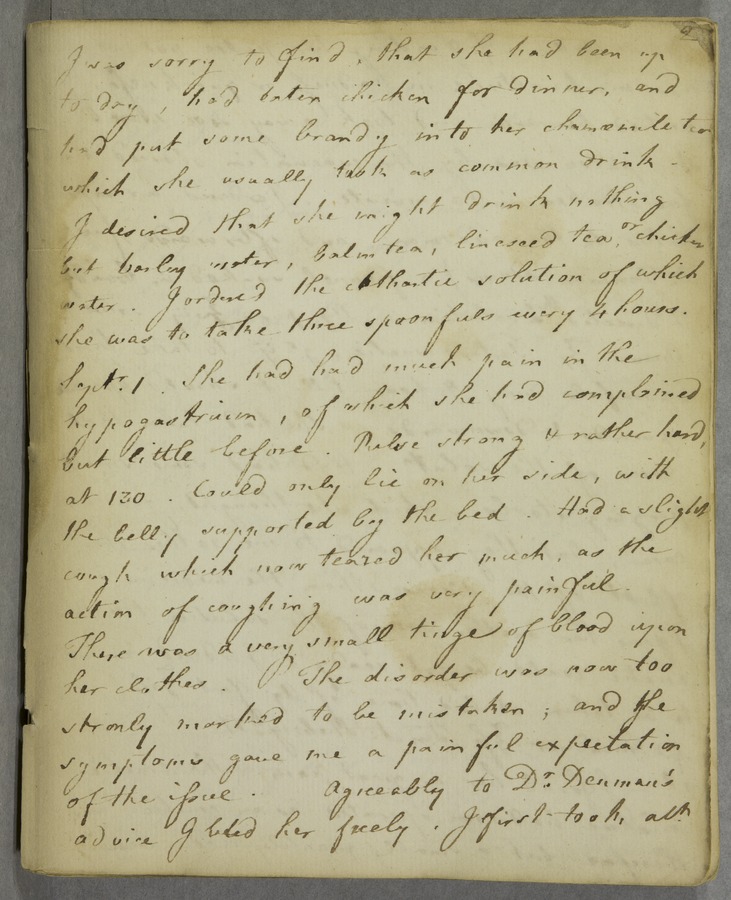 I was sorry to find, that she had been up
to day, had eaten chicken for dinner, and
had put some brandy into her chamomile tea
which she usually took as common drink -
I desired that she might drink nothing
but barley water, balm tea, linseed tea, or chicken
water. I ordered the cathartic solution of which
she was to take three spoonfuls every 4 hours.
Septr. 1. She had had much pain in the
hypogastrium, of which she had complained
but little before. Pulse strong & rather hard,
at 120. Could only lie on her side, with
the belly supported by the bed. Had a slight
cough which now teazed her much, as the
action of coughing was very painful.
There was a very small tinge of blood upon
her clothes. The disorder was now too
stronly marked to be mistaken; and the
symptoms gave me a painful expectation
of the issue. Agreeably to Dr. Denman's
advice I bled her freely. I first took, abt